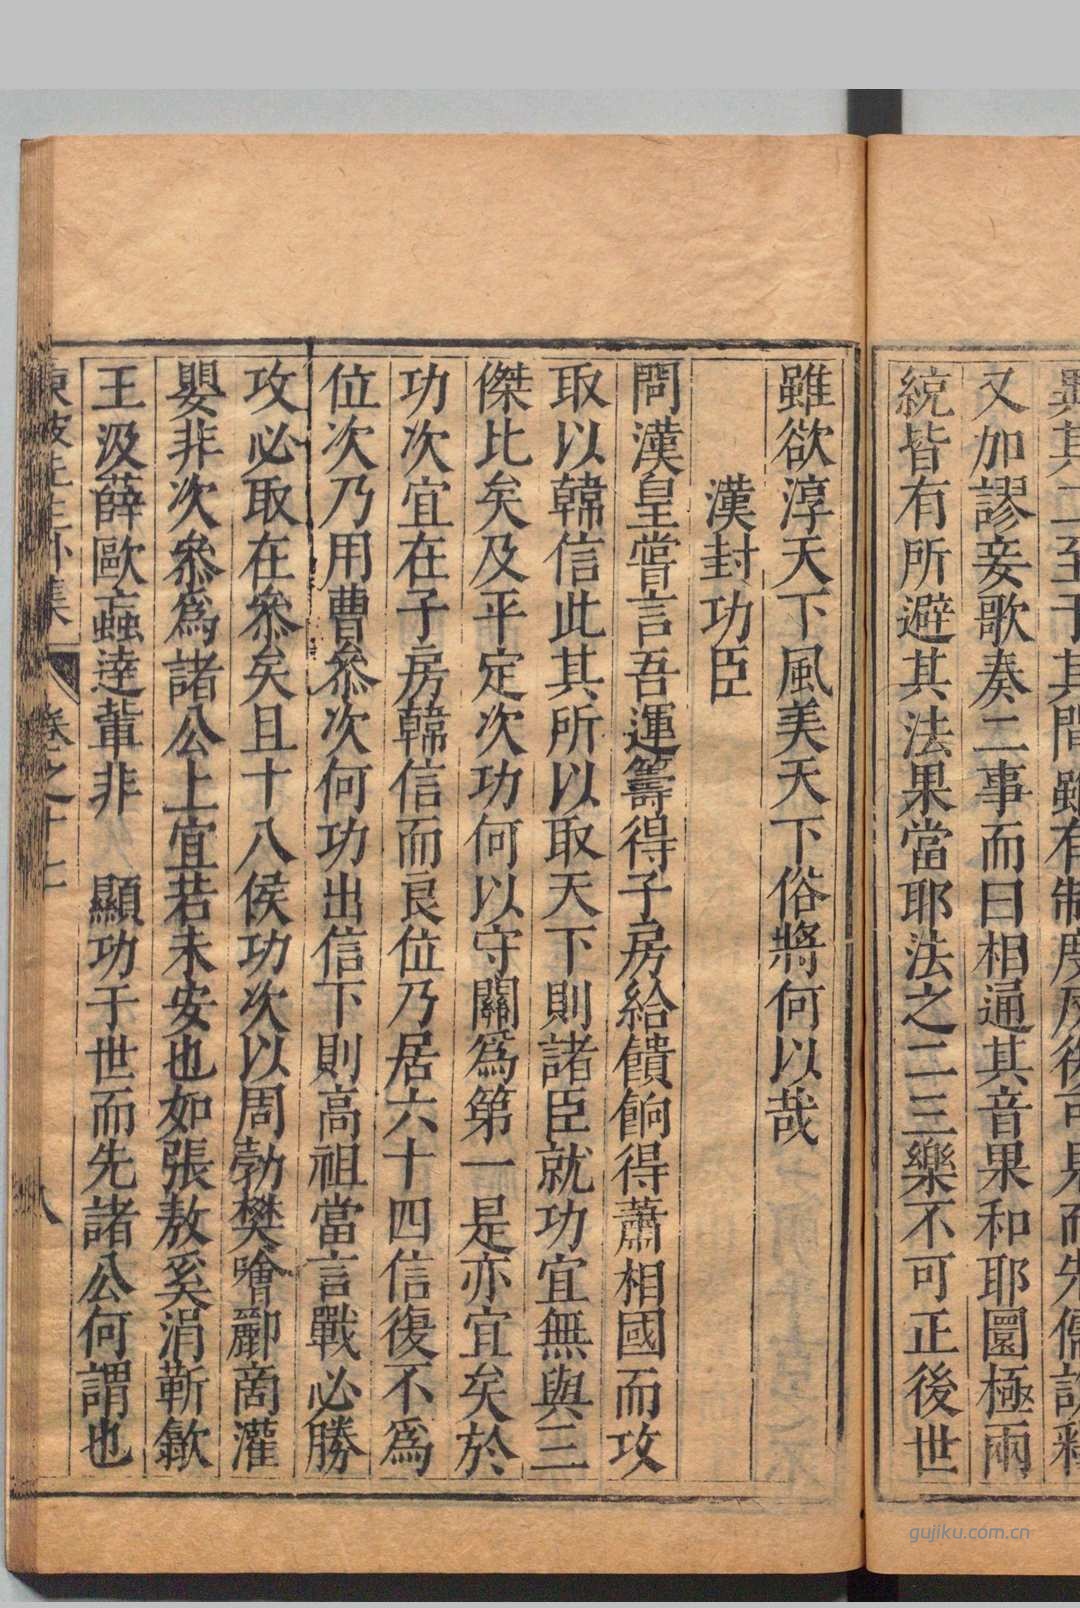 又加謬妄歌奏二事而曰相通其音果和耶圜極兩
統皆有所避其法果當耶法之二三樂不可正後世
雖欲淳天下風美天下俗將何以哉
漢封功臣
問漢皇嘗言吾運籌得子房給饋餉得蕭相國而攻
取以韓信此其所以取天下則諸臣就功宜無與三
傑比矣及平定次功何以守關爲第一是亦宜矣於
功次宜在子房韓信而良位乃居六十四信復不爲
位次乃用曹叅次何功出信下則高祖當言戰必勝
攻必取在叅矣且十八侯功次以周勃樊噲酈啇灌
嬰非次叅爲諸公上宜若未安也如張敖奚涓靳歙
王汲薛歐蟲逹輩非 顯功于世而先諸公何謂也
卷之十七
八
gujiku.com.cn